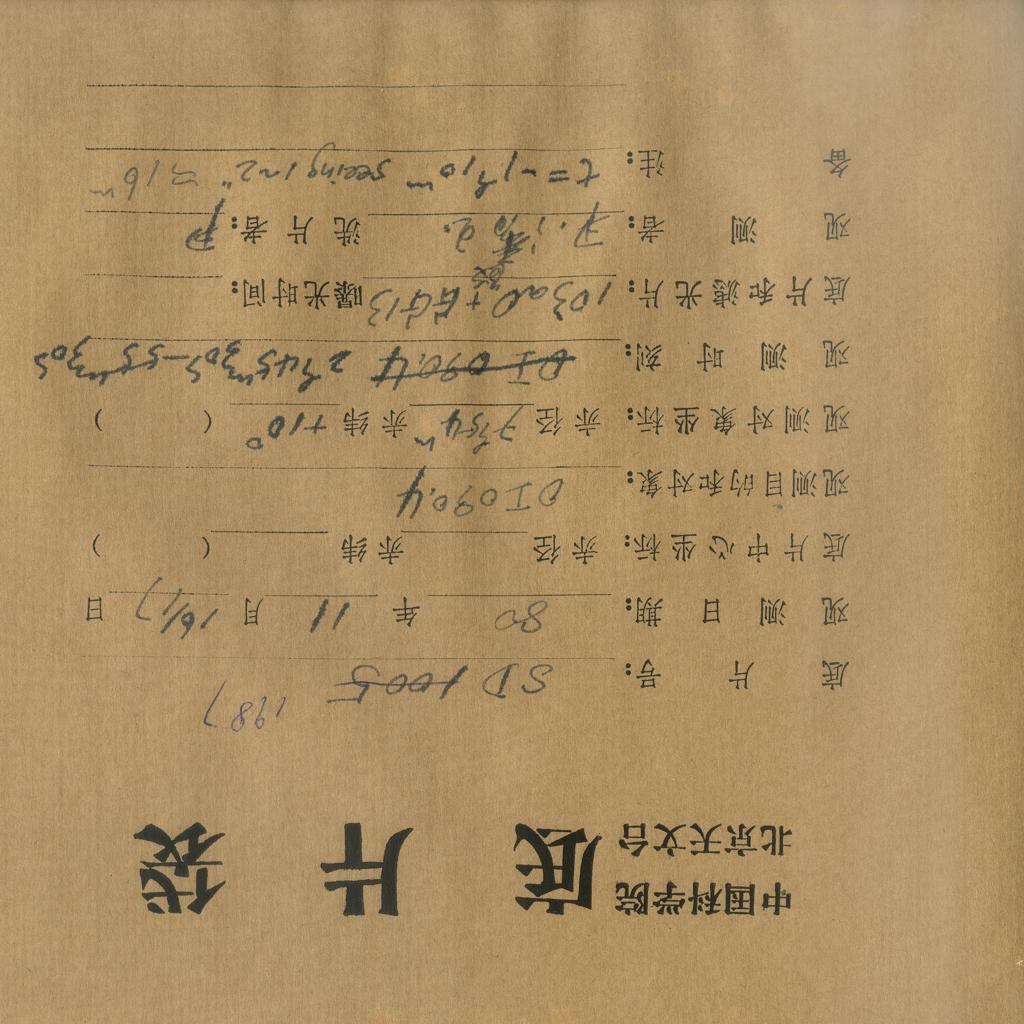 中国科学院
北京天文台
底片袋
1987
底片号: SD 1005
观测日期: 80 年 11 月 16/17 日
底片中心坐标: 赤径 赤纬 ( )
观测目的和对象: OI 090.4
观测对象坐标: 赤径 7h54m 赤纬 +10° ( )
观测时刻: OI 090.4 2h45m30s-55m30s
底片和滤光片: 103aO + GG13 曝光时间:
观测者: 洗片者:
备注: t = -1h10m seeing 1~2" 16m